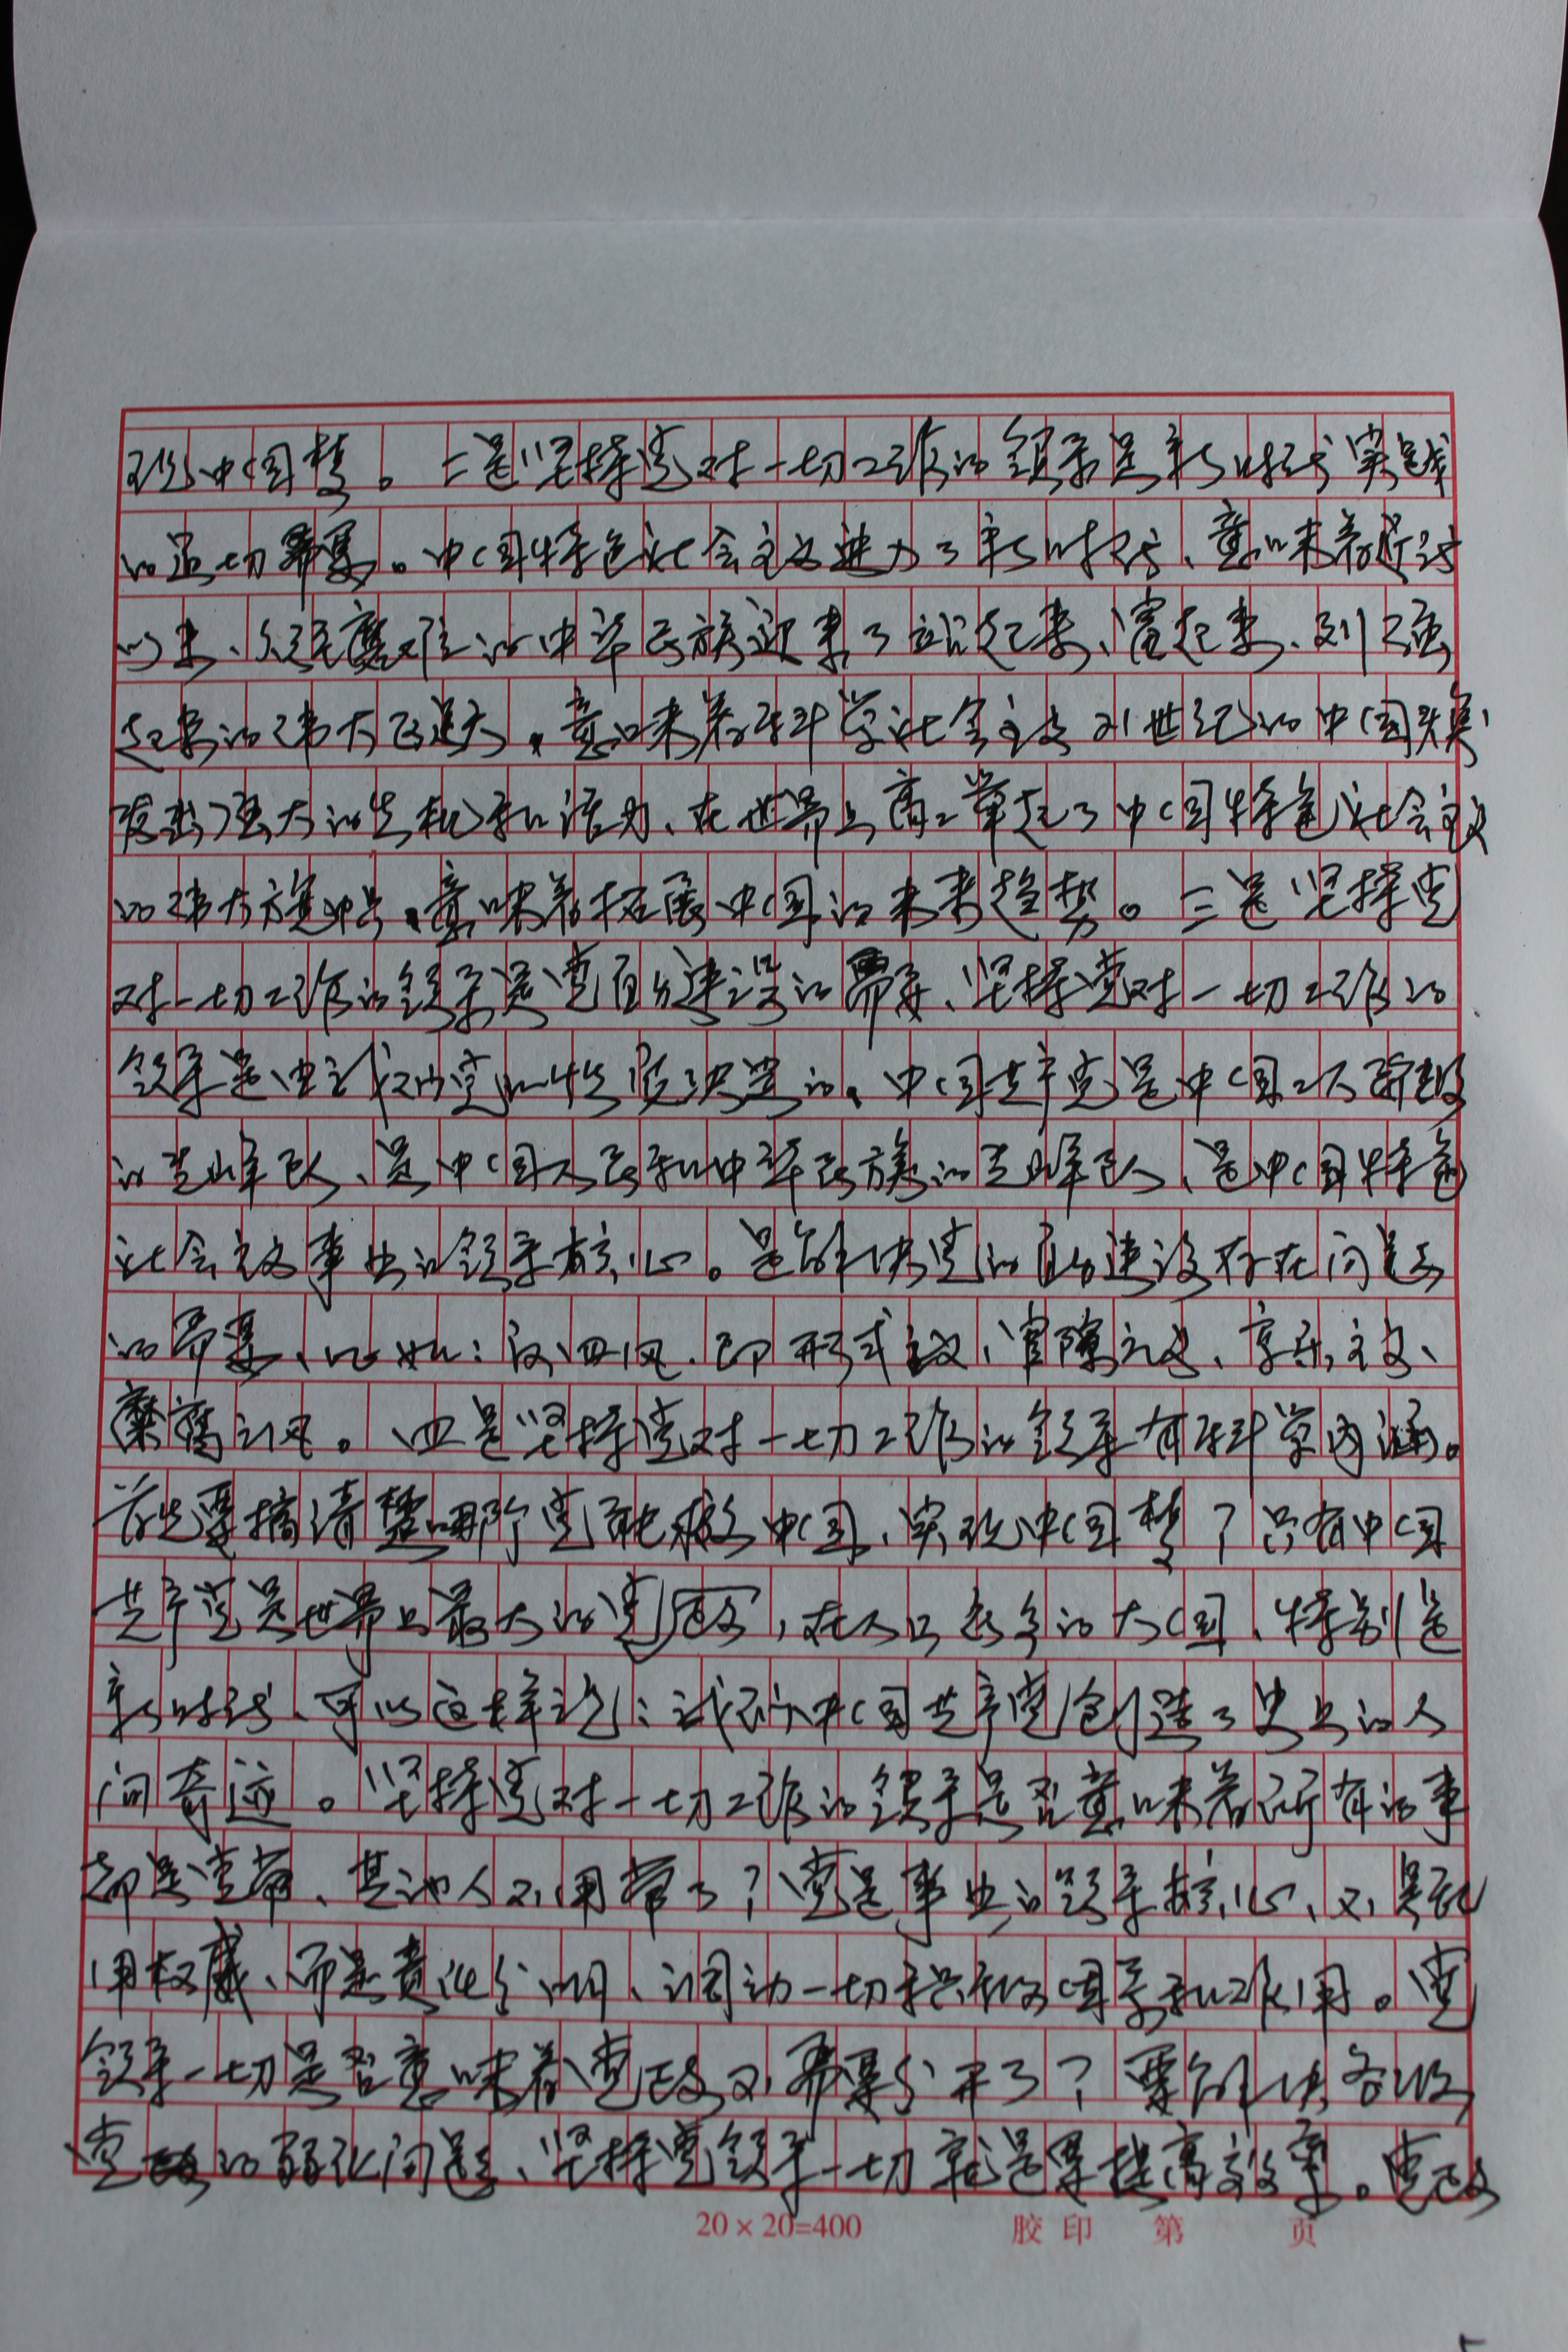 现中国梦。二是坚持党对一切工作的领导是新时代实践
的迫切需要。中国特色社会主义进入了新时代、意味着近代
以来、久经磨难的中华民族迎来了站起来、富起来、到强
起来的伟大飞跃、意味着科学社会主义21世纪的中国焕
发出强大的生机和活力、在世界上高高举起了中国特色社会主义
的伟大旗帜、意味着拓展中国的未来趋势。三是坚持党
对一切工作的领导是党自身建设的需要、坚持党对一切工作的
领导是由我们党的性质决定的、中国共产党是中国工人阶级
的先锋队、是中国人民和中华民族的先锋队、是中国特色
社会主义事业的领导核心。是解决党的自身建设存在问题
的需要、比如：反四风.即形式主义、官僚主义、享乐主义、
糜腐之风。四是坚持党对一切工作的领导有科学内涵。
首先要搞清楚哪个党能救中国、实现中国梦？只有中国
共产党是世界上最大的党政，在人口众多的大国、特别是
新时代、可以这样说：我们中国共产党创造了史上的人
间奇迹。坚持党对一切工作的领导是否意味着所有的事
都是党带、其他人不用带了？党是事业的领导核心、不是乱
用权威、而是责任分明、调动一切积极因素和作用。党
领导一切是否意味着党政不需要分开了？要解决各级
党政的弱化问题、坚持党领导一切就是要提高效率。党政
20×20=400 胶印 第 页